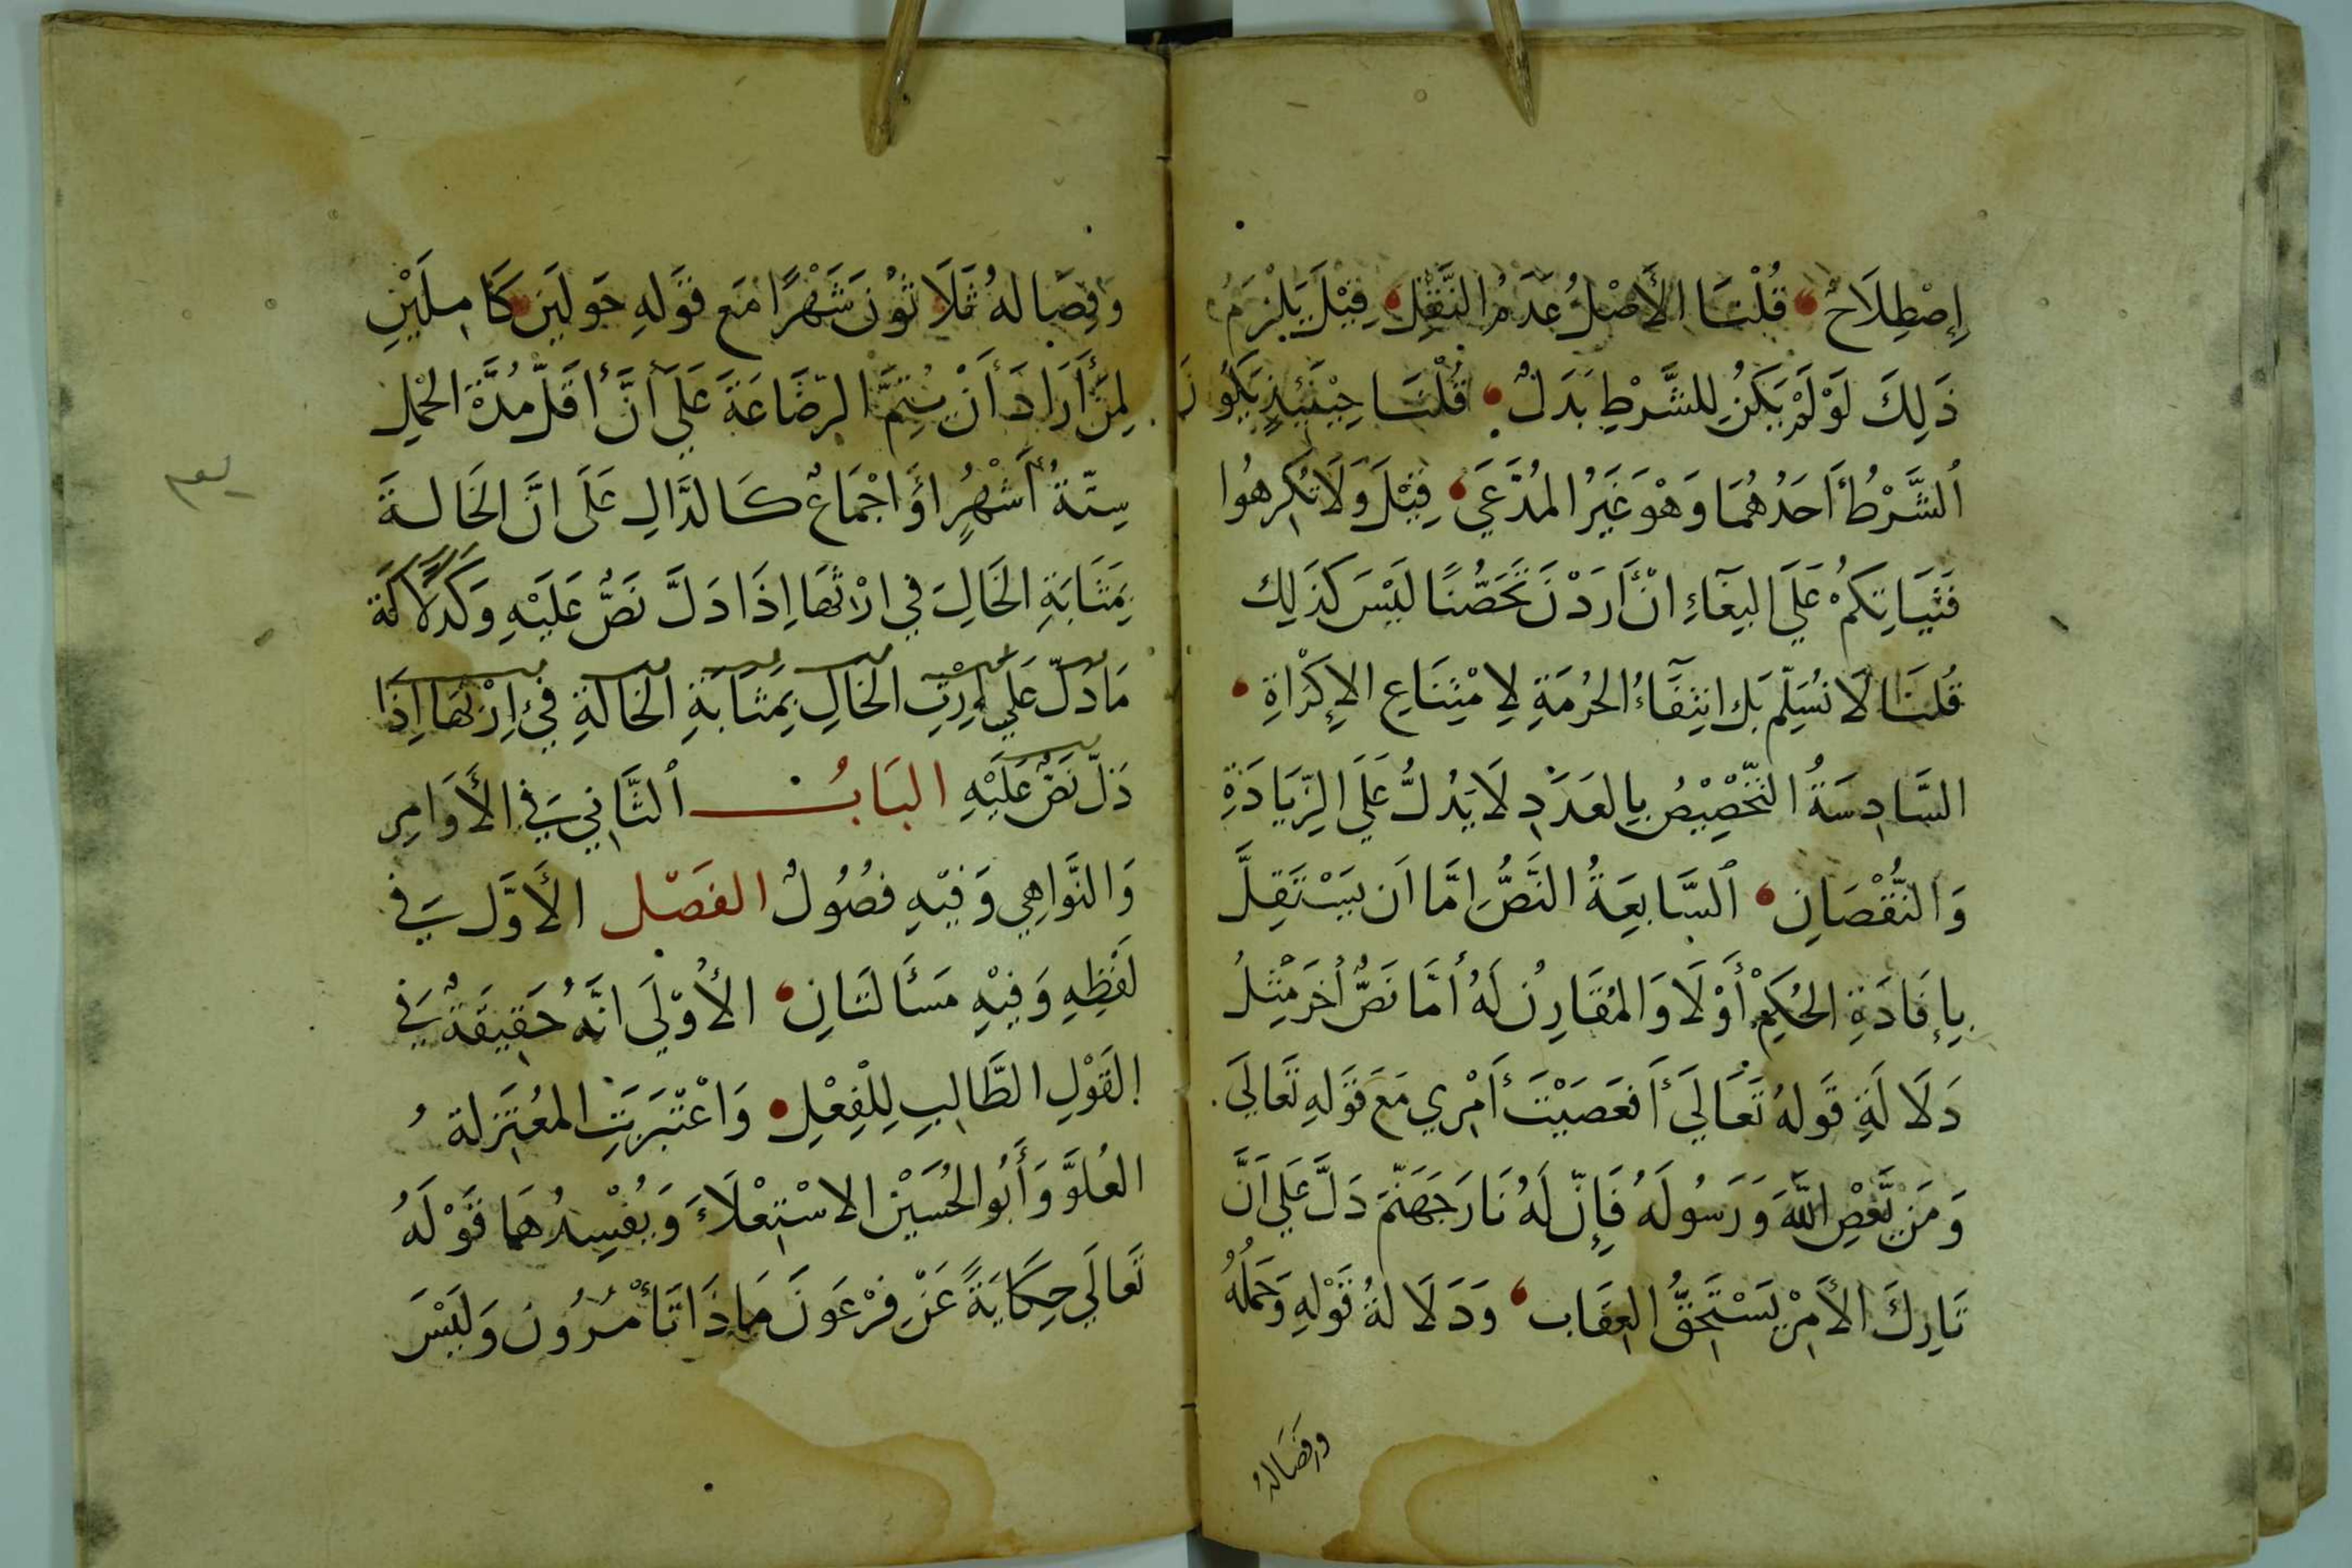 إِصْطِلَاحٌ قُلْنَا الأَصْلُ عَدَمُ النَّقْلِ قِيْلَ يَلْزَمُ
ذَلِكَ لَوْ لَمْ يَكُنْ لِلشَّرْطِ بَدَلٌ قُلْنَا حِيْنَئِذٍ يَكُونُ
الشَّرْطُ أَحَدُهُمَا وَهْوَ غَيْرُ المُدَّعَي قِيْلَ وَلَا تُكْرِهُوا
فَتَيَاتِكُمْ عَلَي البِغَآءِ انْ أَرَدْنَ تَحَصُّنًا لَيْسَ كَذَلِك
قُلنَا لَا نُسَلِّم بَل انتِفَآءُ الحُرمَةِ لِامْتِنَاعِ الإِكْرَاهِ
السَّادِسَةُ التَّخْصِيْصُ بِالعَدَدِ لَا يَدُلُّ عَلَي الزِّيَادَةِ
وَالنُّقْصَانِ السَّابِعَةُ النَّصُّ اِمَّا اَن يَسْتَقِلَّ
بِإِفَادَةِ الحُكمِ أَوْلَا وَالمُقَارِنُ لَهُ أمَّا نَصٌّ أخَر مِثْلُ
دَلَالَةِ قَولهُ تَعَالَي أَفَعَصَيْتَ أَمْرِي مَعَ قَولهِ تَعَالَي
وَمَن يَّعْصِ اللَّهَ وَرَسُولَهُ فَإِنّ لَهُ نَارَ جَهَنَّمَ دَلَّ عَلَي اَنَّ
تَارِكَ الأَمْرِ يَسْتَحِقُّ العِقَاب وَدَلَالةُ قَوْلهِ وَحَمْلُهُ
وفصَالهُ
وَفِصَالهُ ثَلَاثُونَ شَهْرًا مَع قَولهِ حَولَين كَامِلَيْنِ
لِمَنْ أَرَادَ أَنْ يُتِمَّ الرّضَاعَةَ عَلَي أنَّ أَقَلَّ مُدَّةِ الحَمْلِ
سِتّةُ أَشْهُرٍ اوْ اجْمَاعٌ كَالدَّالِ عَلَى انَّ الخَالةَ
بِمَثَابَةِ الخَالِ في ارْثهَا اِذَا دَلَّ نَصٌّ عَلَيْهِ
مَا دَلَّ عَلَي الخَالِ بِمَثَابَةِ الخَالَةِ في إِرْثهَا اِذَا
دَلَّ نَصٌّ عَلَيْهِ البَابُ الثَّانِي فِي الأَوَامِرِ
وَالنَّوَاهِي وَفِيْهِ فصُولٌ الفَصْل الأَوَّل فِي
لَفْظِهِ وَفِيْهِ مَسْأَلتَانِ الأُوْلَي انَّهُ حَقِيقَةٌ فِي
القَوْلِ الطَّالِبِ لِلْفِعْلِ وَاعْتَبَرَتِ المعُتَزِلة
العُلوَّ وَأَبُو الحُسَيْنِ الاسْتِعْلَاءَ وَيُفْسِدُهمَا قَوْلَهُ
تَعَالَي حِكَايَةً عَنْ فِرْعَونَ مَاذَا تَأْمُرُونَ وَلَيْسَ